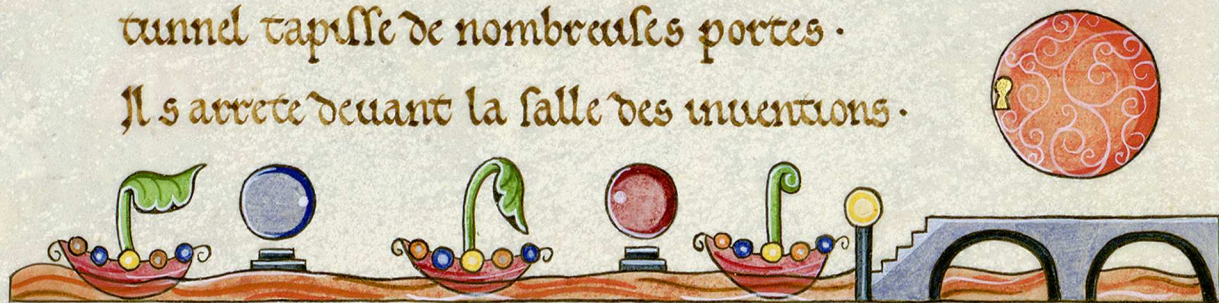 tunnel tapisse de nombreuses portes.
Il s arrete devant la salle des inventions.